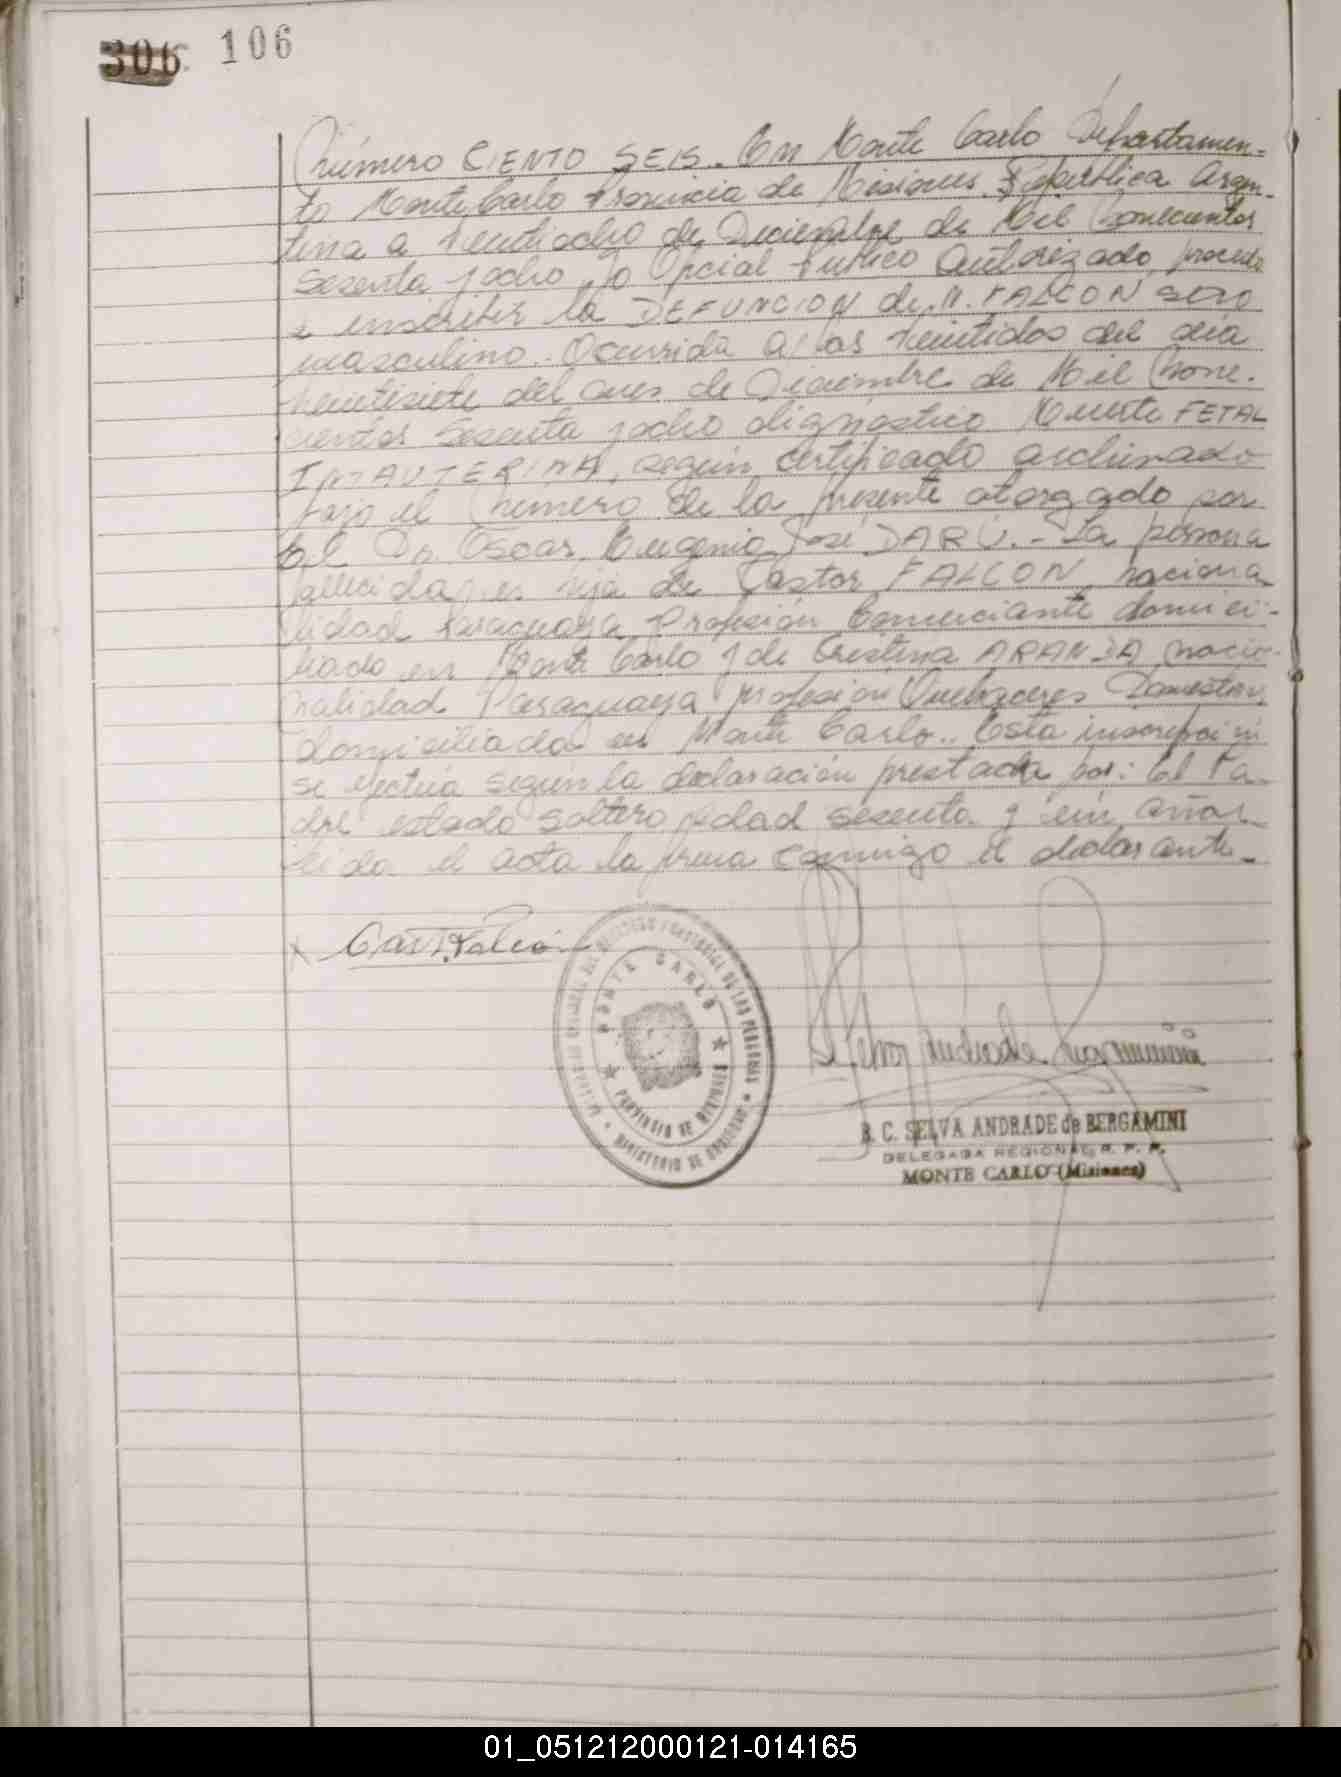 306 106
Número CIENTO SEIS. En Monte Carlo Departamen-
to Monte Carlo Provincia de Misiones República Argen-
tina a veintiocho de Diciembre de Mil Novecientos
sesenta y ocho, yo Oficial Público Autorizado, procedo
a inscribir la DEFUNCION de N. FALCON sexo
masculino. Ocurrida a las veintidos del dia
veintisiete del mes de Diciembre de Mil Nove-
cientos sesenta y ocho diagnóstico Muerte FETAL
INTAUTERINA, según certificado archivado
bajo el Número de la presente otorgado por
El Dr. Oscar Eugenio José DARÚ.- La persona
fallecida es hija de Castor FALCON, naciona
lidad Paraguaya Profesión Comerciante domici-
liado en Monte Carlo y de Cristina ARANDA nacio-
nalidad Paraguaya profesión Quehaceres Domesticos,
domiciliada en Monte Carlo.. Esta inscripción
se efectúa según la declaración prestada por: El Pa-
dre estado soltero edad sesenta y un años
leida el acta la firma conmigo el declarante-
x Cast. Falcón
MONTE CARLO
PROVINCIA DE MISIONES
REGISTRO PROVINCIAL DE LAS PERSONAS
MINISTERIO DE GOBIERNO
Selva Andrade Bergamini
B. C. SELVA ANDRADE de BERGAMINI
DELEGADA REGIONAL R. P. P.
MONTE CARLO (Misiones)
01_051212000121-014165